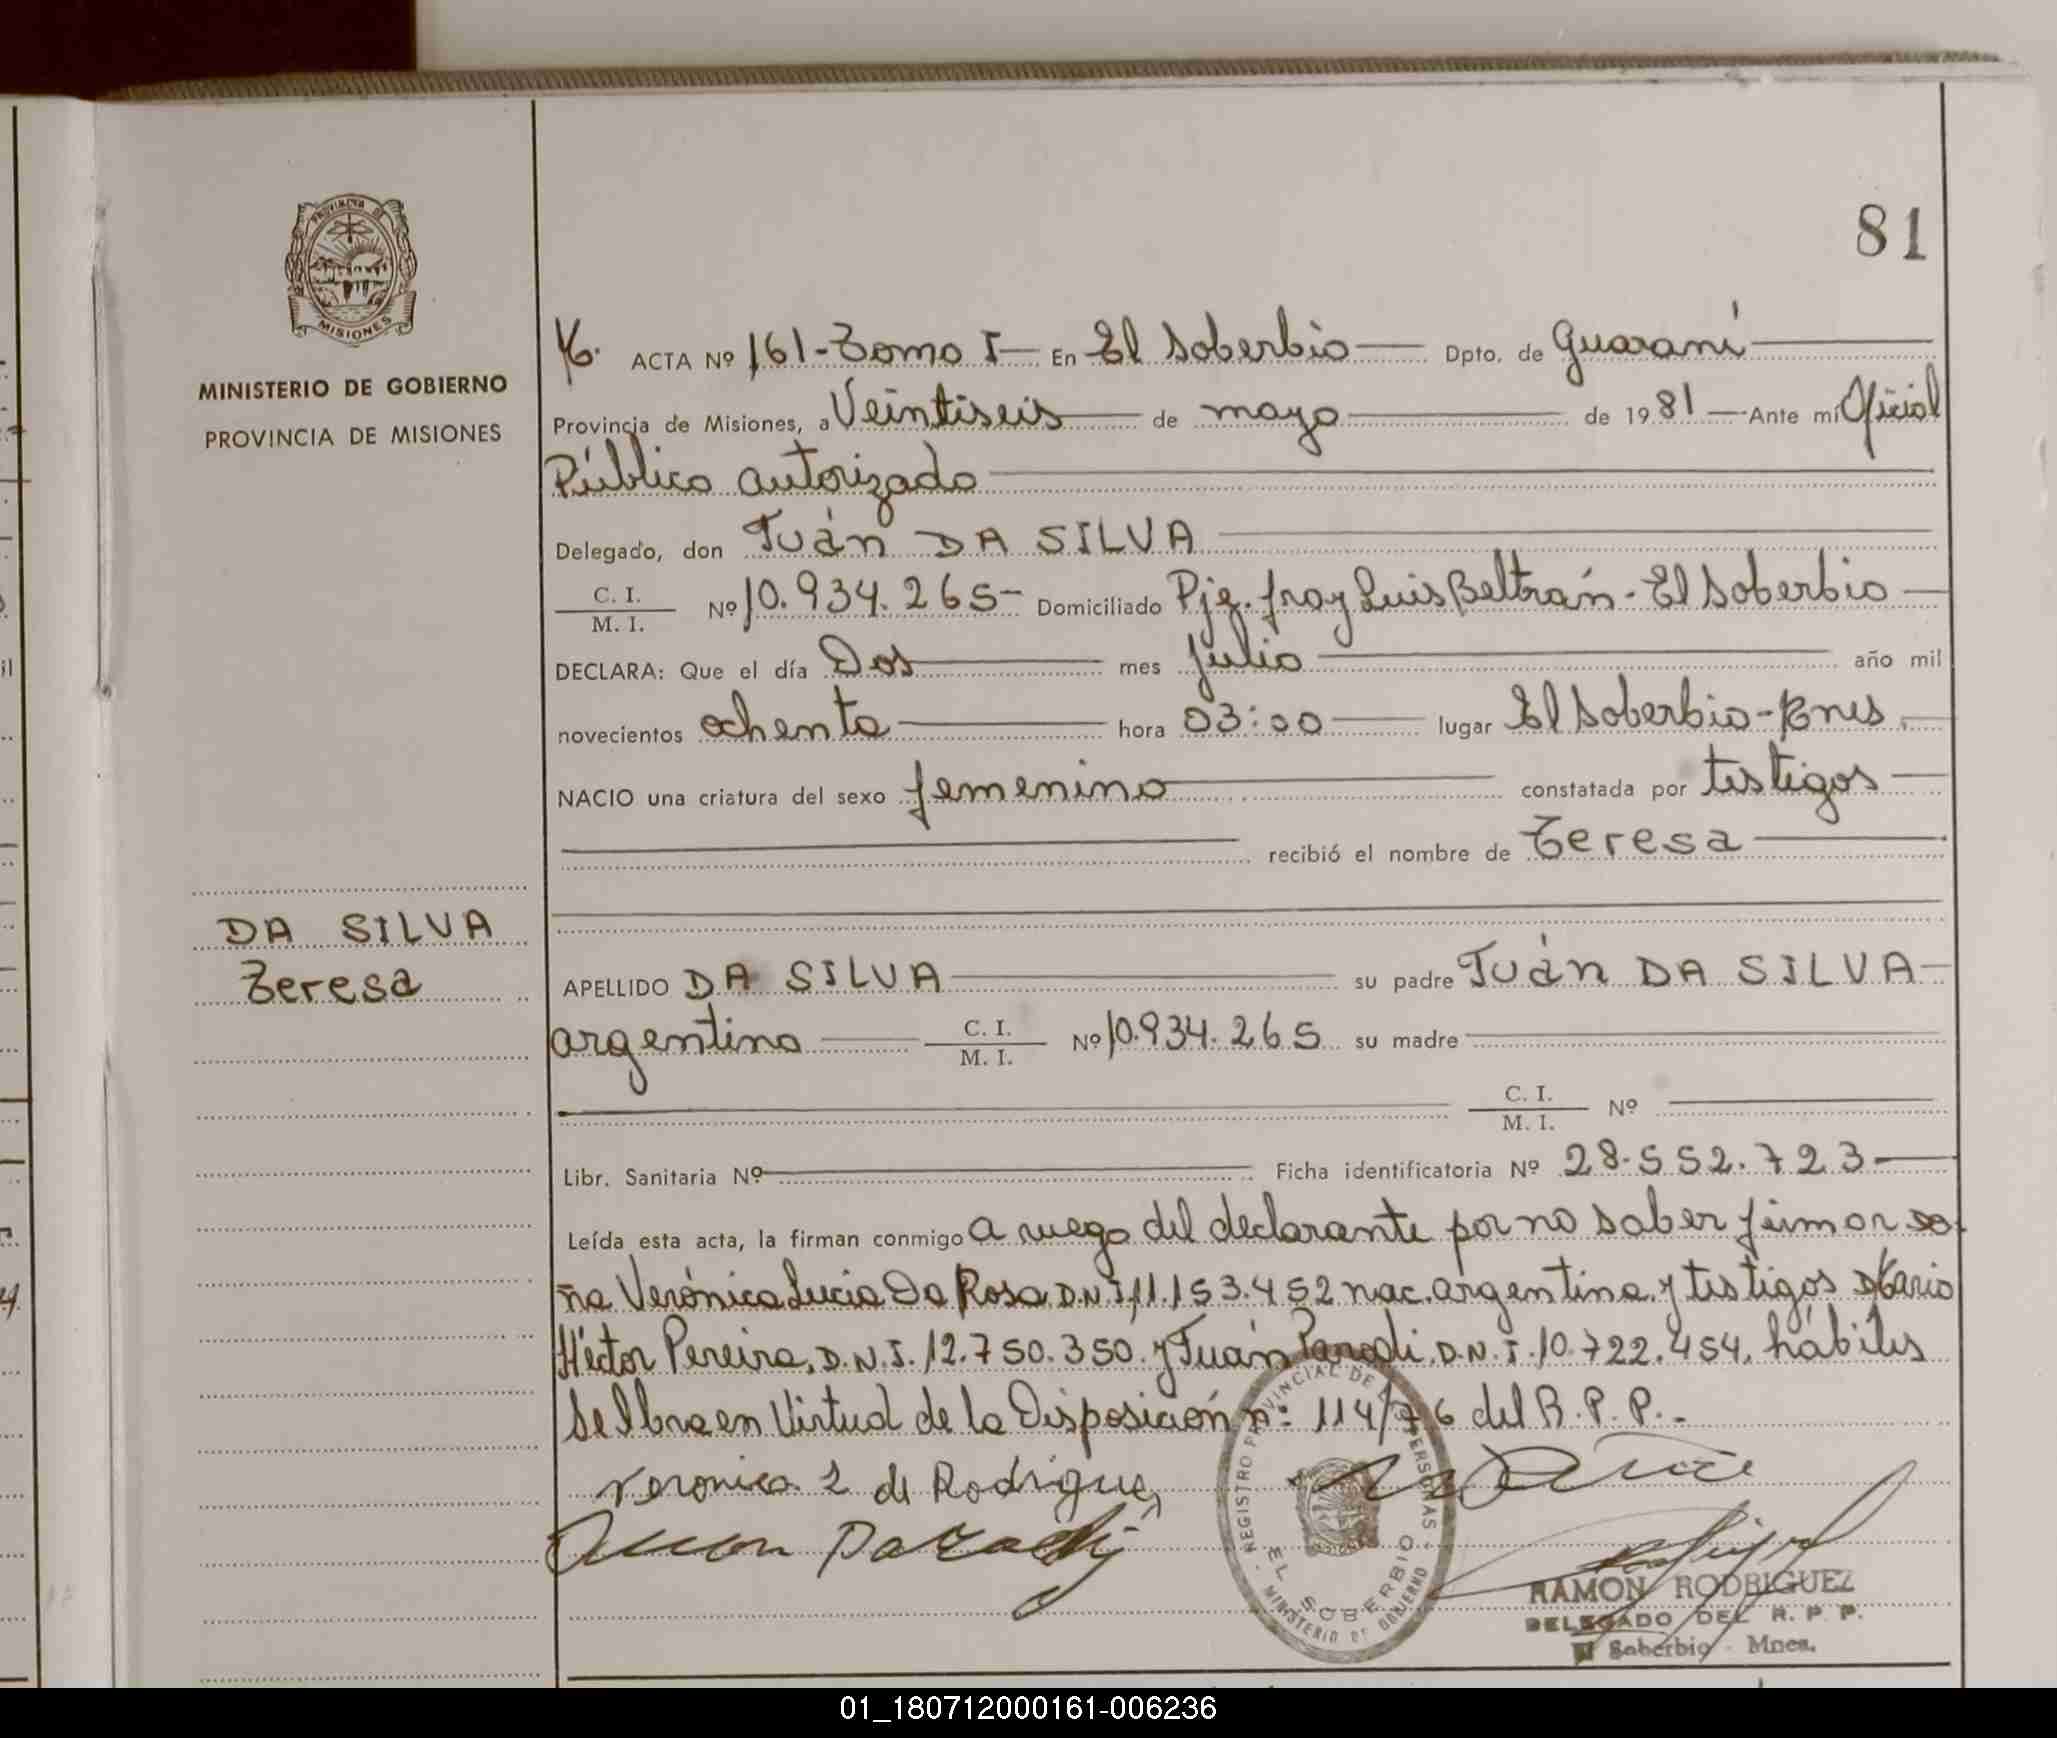 81
PROVINCIA DE
MISIONES
MINISTERIO DE GOBIERNO
PROVINCIA DE MISIONES
ACTA Nº 161-Tomo I En El Soberbio Dpto. de Guaraní
Provincia de Misiones, a Veintiseis de mayo de 1981 Ante mí Oficial
Público autorizado
Delegado, don Juán DA SILVA
C. I. / M. I. Nº 10.934.265- Domiciliado Pje. fray Luis Beltrán - El Soberbio
DECLARA: Que el día Dos mes julio año mil
novecientos ochenta hora 03:00 lugar El Soberbio -
NACIO una criatura del sexo femenino constatada por testigos
recibió el nombre de Teresa
DA SILVA
Teresa
APELLIDO DA SILVA su padre Juán DA SILVA
argentino C. I. / M. I. Nº 10.934.265 su madre
C. I. / M. I. Nº
Libr. Sanitaria Nº Ficha identificatoria Nº 28.552.723
Leída esta acta, la firman conmigo a ruego del declarante por no saber firmar do-
ña Verónica Lucia Da Rosa, D.N.I. 11.153.452 nac. argentina, y testigos Mario
Héctor Pereira, D.N.I. 12.750.350 y Juán Parodi, D.N.I. 10.722.454, hábiles
Se labra en Virtud de la Disposición nº 114/76 del R.P.P.-
Veronica L de Rodriguez
Juan Parodi
REGISTRO PROVINCIAL DE LAS PERSONAS
EL SOBERBIO
MINISTERIO DE GOBIERNO
RAMON RODRIGUEZ
DELEGADO DEL R. P. P.
El Soberbio - Mnes.
01_180712000161-006236